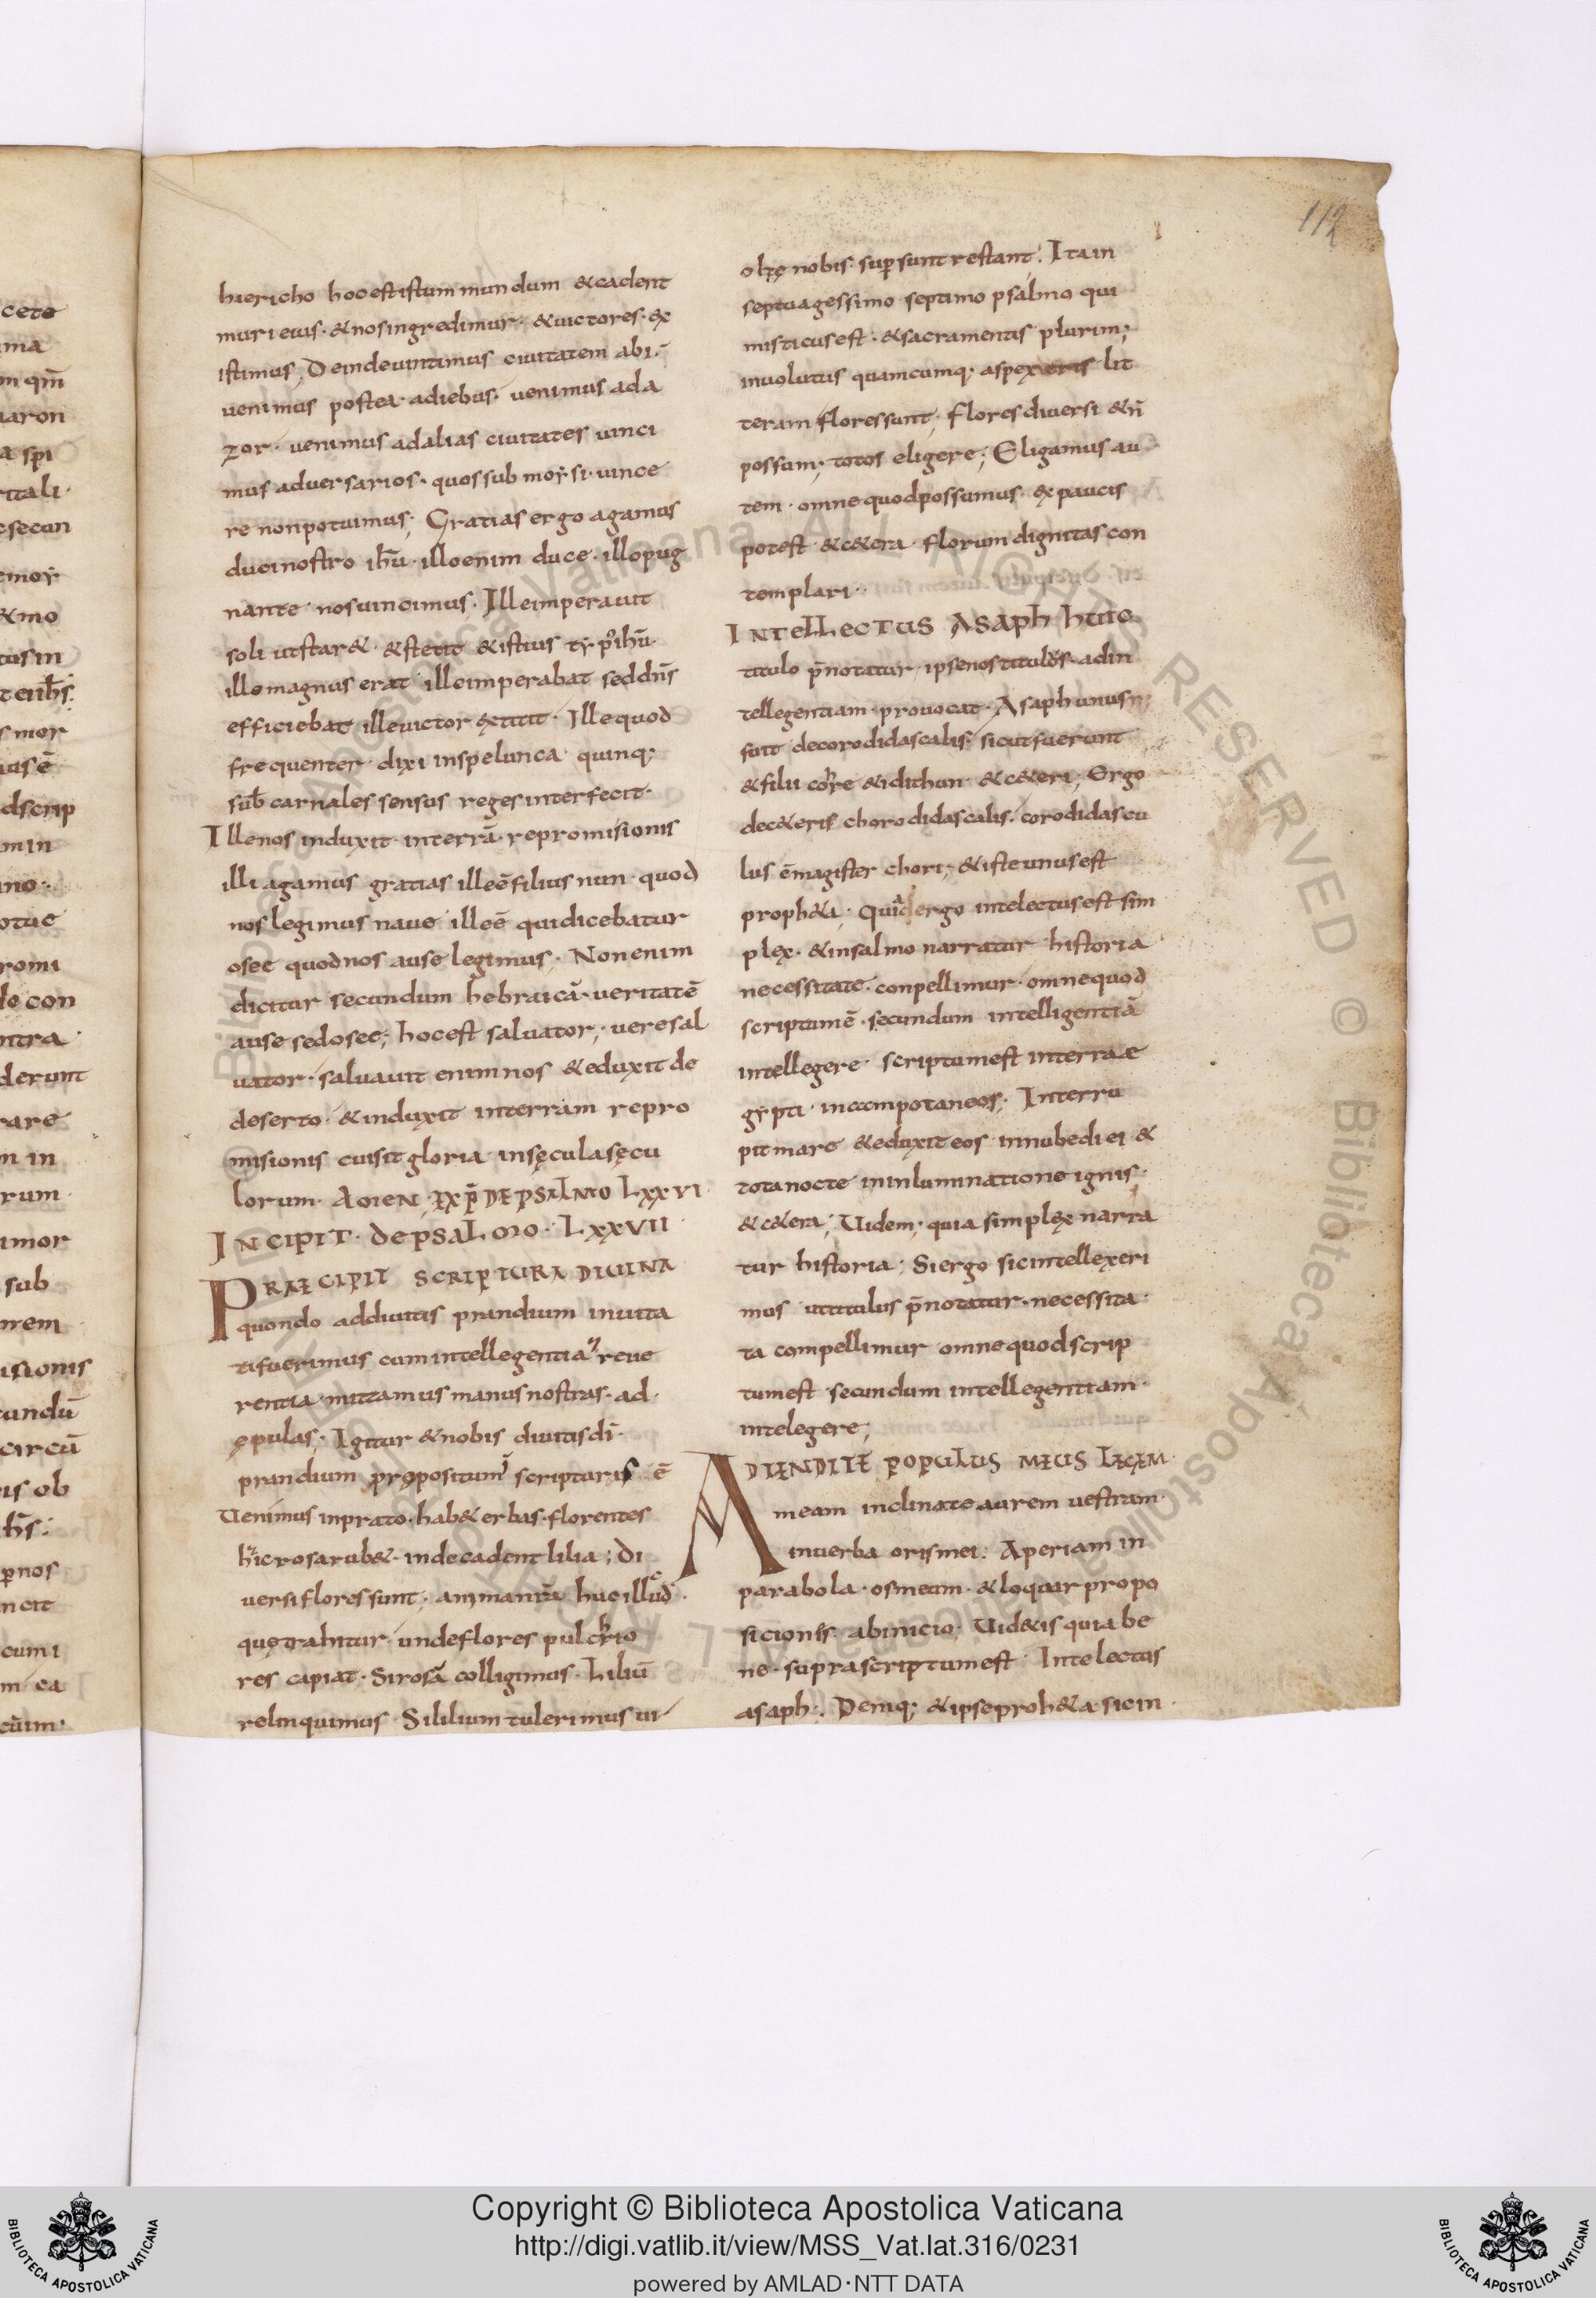 112
ceto
ma
m qm̄
aaron
a sp̄i
ritali·
secun
moy
&mo
tus in
mor
us ē
dscrip
m in
ano·
otue
romi
lo con
ntra
derunt
rare
m in
rum
imor
sub
rem
isionis
cundū
circū
is ob
nos
ncit
cum i
m ea
cum·
hiericho hocest istum mundum &cadent
muri eius· &nos ingredimur· &uictores· ex
istimus; Deinde uintimus ciuitatem abi·
uenimus postea· adiebus· uenimus ad a
zor· uenimus adalias ciuitates uinci
mus aduersarios· quos sub moysi· uince
re non potuimus; Gratias ergo agamus
duci nostro ih̄u· illo enim duce· illo pug
nante· nos uincimus· Ille imperauit
soli ut star&· &stetit &istius ty p̄ ih̄u·
ille magnus erat ille imperabat sed dn̄s
efficiebat ille uictor extitit· Ille quod
frequenter dixi in spelunca quinq;
sub carnales sensus reges interfecit·
Ille nos induxit in terrā· repromisionis
illi agamus gratias ille ē filius nun· quod
nos legimus naue ille ē qui dicebatur
osee quod nos ause legimus· Non enim
dicitur secundum hebraicā· ueritatē
ause sed osee; hoc est saluator; uere sal
uator· saluauit enim nos &eduxit de
deserto· &induxit in terram repro
misionis cui sit gloria in sęcula sęcu
lorum· AMEN· EXP̄ DE PSALMO LXXVI·
INCIPIT· DE PSALMO· LXXVII·
PRAECIPIT SCRIPTURA DIUINA
quando ad diuitis prandium inuita
ti fuerimus cum intellegentia reue
rentia mittamus manus nostras· ad·
ępulas; Igitur &nobis diuitis dī·
prandium propositum scripturis ē
Uenimus in prato· hab& erbas· florentes
hic rosa rub&· inde cadent lilia; Di
uersi flores sunt; anima nr̄a huc illuc
quę trahitur unde flores pulchrio
res capiat· Si rosā colligimus· Liliū
relinquimus· Si lilium tulerimus ui
olę nobis· supersunt restant; Ita in
septuagessimo septimo psalmo qui
misticus est· &sacramentis plurim;
inuolutus quamcumq; aspexeris lit
teram flores sunt; flores diuersi &n̄
possum; totos eligere; Eligamus au
tem· omne quod possumus· ex paucis
potest &c&era· florum dignitas con
templari··
INTELLECTUS ASAPH Huic
titulo p̄notatur· ipse nos titulus· ad in
tellegentiam· prouocat· Asaph unus
fuit de corodidascalis· sicut fuerunt
&filii core &idithun· &c&eri; Ergo
de c&eris chorodidascalis· corodidascu
lus ē magister chori; &iste unus est
proph&a; Quia ergo intelectus est sim
plex· &in salmo narratur historia
necessitate· conpellimur· omne quod
scriptum ē· secundum intelligentiā
intellegere· scriptum est in terra ae
gypti· in campo taneos; Interru
pit mare &eduxit eos in nube diei &
tota nocte in inluminatione ignis·
&c&era; Uidem; quia simplex narra
tur historia; Si ergo sic intellexeri
mus ut titulus p̄notatur· necessita·
ta compellimur omne quod scrip
tum est secundum intellegentiam·
intelegere;
ADTENDITE POPULUS MEUS LEGEM
meam inclinate aurem uestram·
in uerba oris mei: Aperiam in
parabola· os meum· &loquar propo
sicionis ab inicio; Uid&is quia be
ne· suprascriptum est· Intelectus
asaph·. Deniq; &ipse proh&a· sic in·
Copyright © Biblioteca Apostolica Vaticana
http://digi.vatlib.it/view/MSS_Vat.lat.316/0231
powered by AMLAD·NTT DATA
BIBLIOTECA APOSTOLICA VATICANA
BIBLIOTECA APOSTOLICA VATICANA